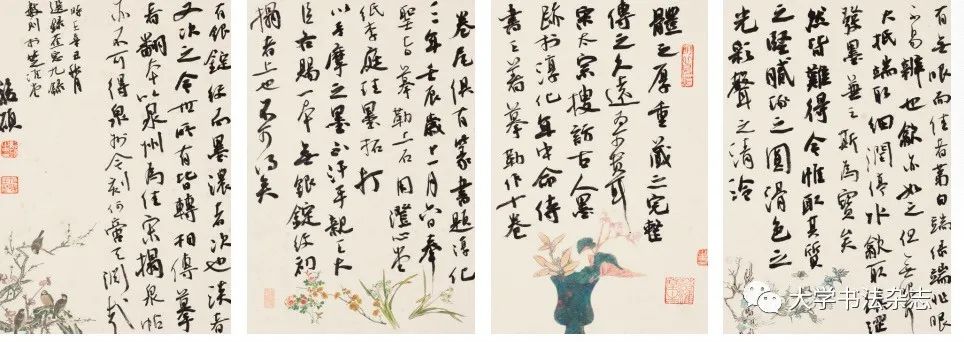 有無眼而佳者第白端
不易辨也歙亦如之但無
大抵端取細潤停水歙取縝澀
發墨兼之斯為寶矣
然皆難得今惟取其質
之堅膩琢之圓滑色之
光彩聲之清泠
體之厚重藏之完整
傳之久遠為可貴耳
宋太宗搜訪古人墨
跡於淳化年中命侍
書王著摹勒作十卷
卷尾俱有篆書題淳化
三年壬辰歲十一月六日奉
聖旨摹勒上石用澄心堂
紙李庭珪墨拓打
以手摩之墨不汙手親王大
臣各賜一本無銀錠紋初
搨者上也不可得矣
有銀錠紋而墨濃者次也淡者
又次之今世所有皆轉相傳摹
者翻本以泉州為佳宋搨泉帖
亦不可得泉州今刻何啻天淵哉
大学书法杂志